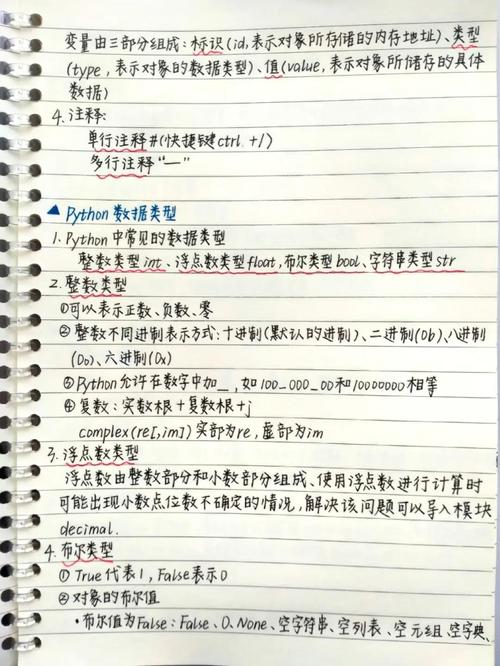 变量由三部分组成：标识(id，表示对象所存储的内存地址)、类型
(type，表示对象的数据类型)、值(value，表示对象所储存的具体
数据)
4. 注释：
单行注释#(快捷键ctrl +/)
多行注释"—"
▲ Python 数据类型
1. Python中常见的数据类型
整数类型int、浮点数类型float，布尔类型bool、字符串类型str
2. 整数类型
①可以表示正数、负数、零
② 整数不同进制表示方式：十进制(默认的进制)、二进制(0b)、八进制
(0o)、六进制(0x)
③ Python允许在数字中加_，如100_000_00和10000000相等
④ 复数：实数根+复数根+j
complex(re[,im]) 实部为re，虚部为im
3. 浮点数类型
浮点数由整数部分和小数部分组成、使用浮点数进行计算时
可能出现小数点位数不确定的情况，解决该问题可以导入模块
decimal.
4. 布尔类型
① True代表1，False表示0
② 对象的布尔值
·布尔值为False：False、0、None、空字符串、空列表、空元组、空字典、